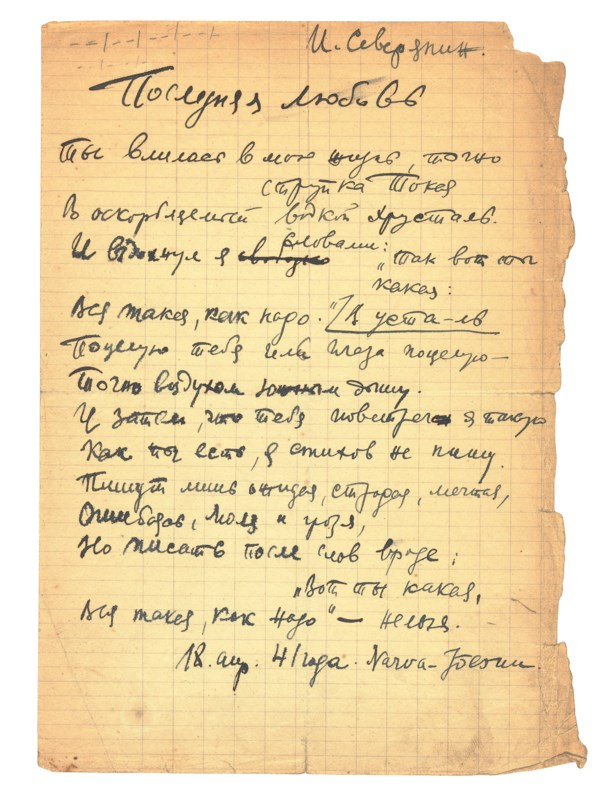 И. Северянин.
Последняя любовь
Ты влилась в мою жизнь, точно
струйка Токая
В оскорбляемый водкой хрусталь.
И вздохнул я словами:
„так вот ты
какая:
Вся такая, как надо." В уста-ль
Поцелую тебя иль глаза поцелую—
Точно воздухом южным дышу.
И затем, что тебя повстречал я такую
Как ты есть, я стихов не пишу.
Пишут лишь ожидая, страдая, мечтая,
Ошибаясь, моля и грозя,
Но писать после слов вроде:
„Вот ты какая,
Вся такая, как надо" — нельзя.
18. апр. 41 года. Narva-Joesuu.